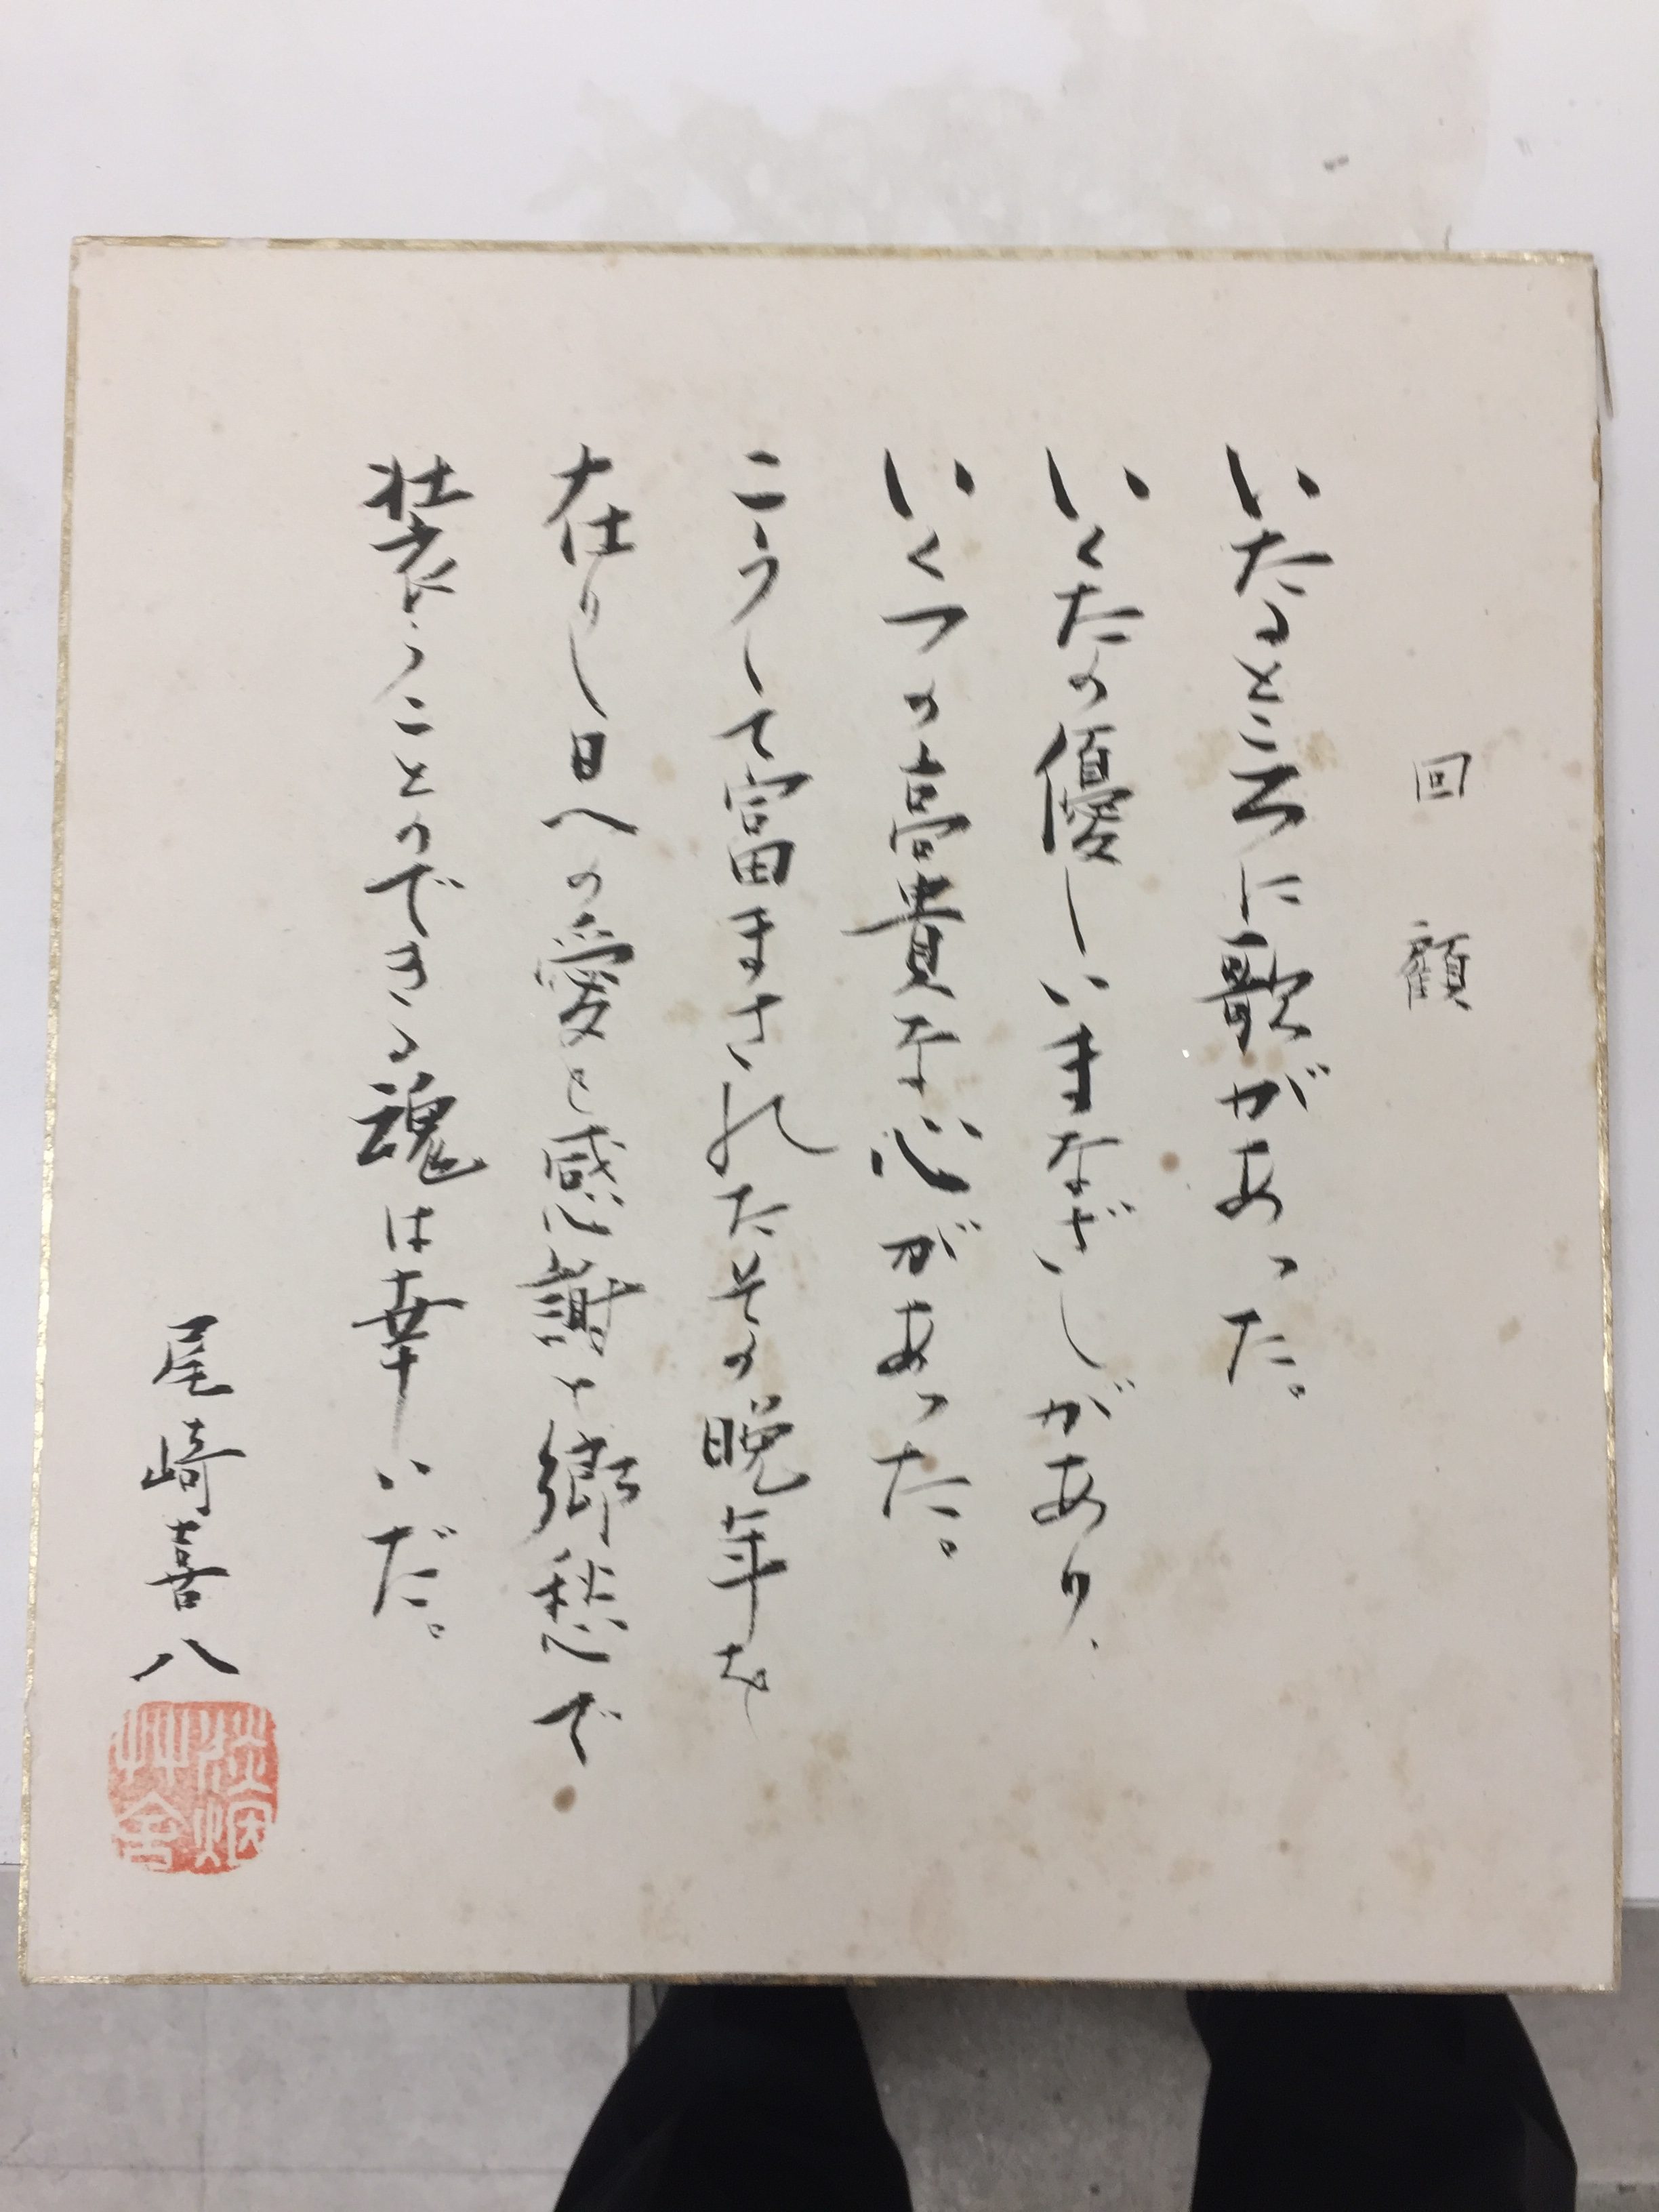 回顧
いたるところに歌があった。
いくたの優しいまなざしがあり、
いくつの高貴な心があった。
こうして富まされたその晩年を
在りし日への愛と感謝と郷愁で
装うことのできる魂は幸いだ。
尾崎喜八
淡烟
艸舎